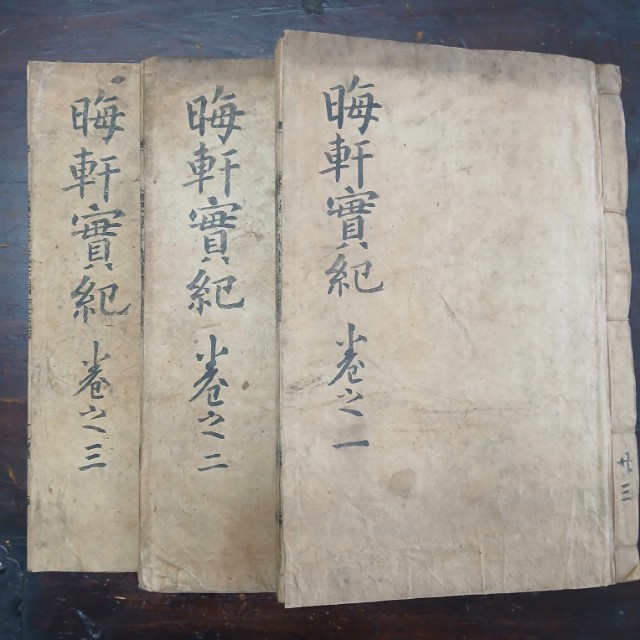 晦軒實紀 卷之一
晦軒實紀 卷之二
晦軒實紀 卷之三
共三